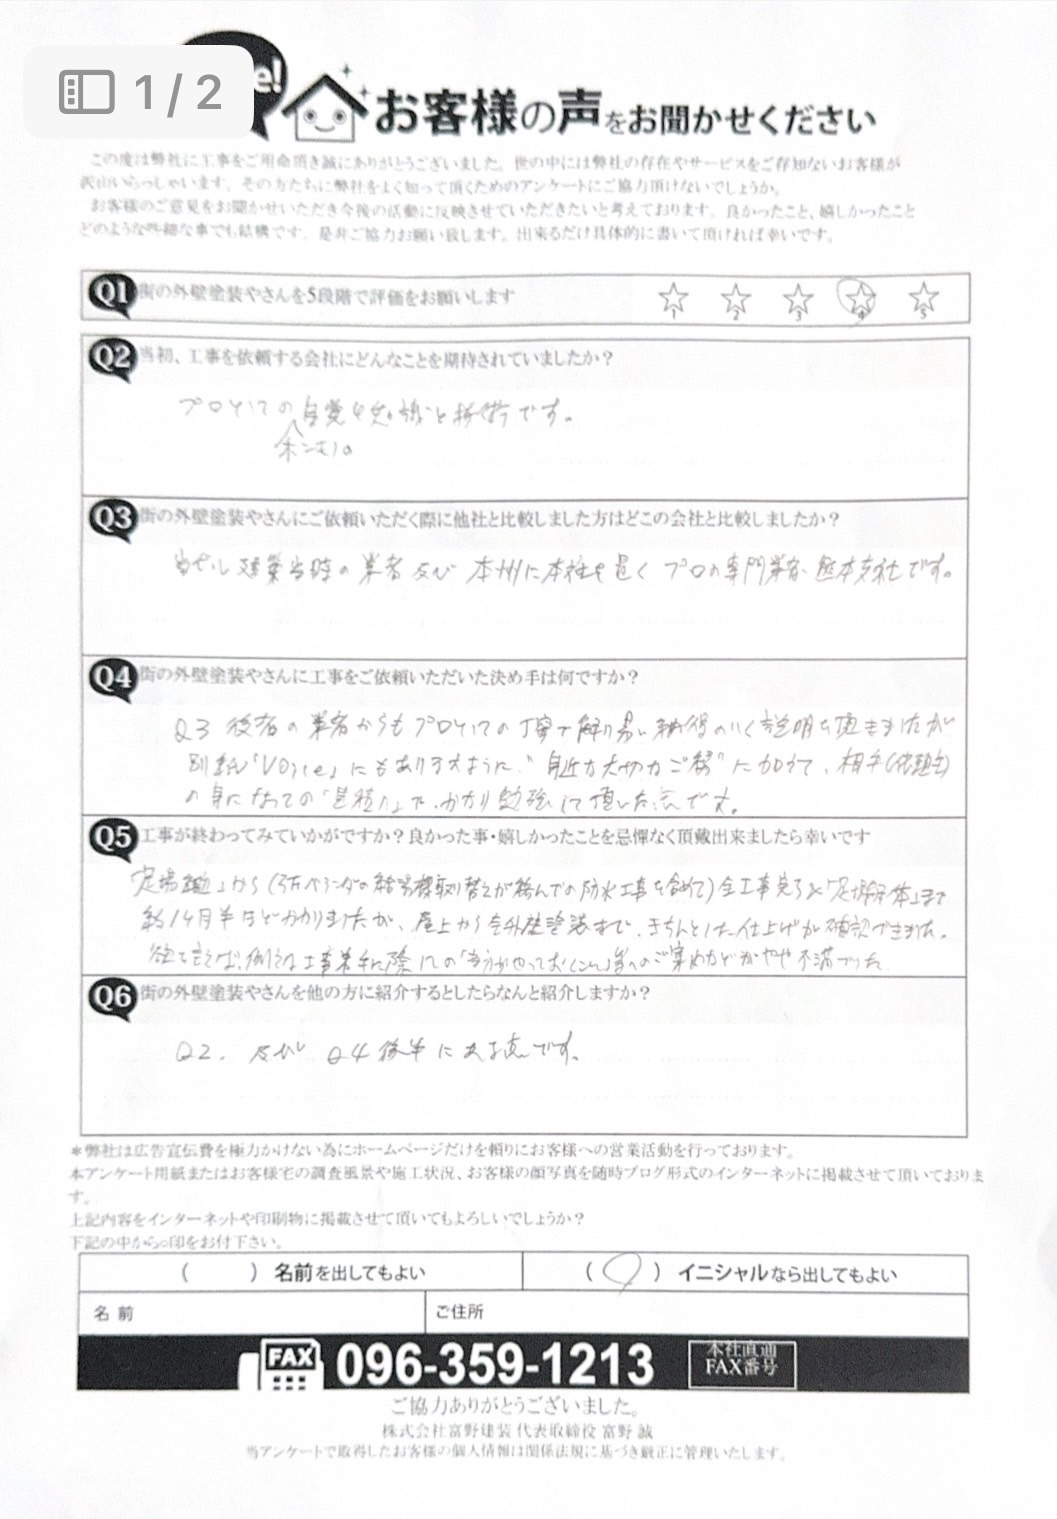 1 / 2
e!
お客様の声をお聞かせください
この度は弊社に工事をご用命頂き誠にありがとうございました。世の中には弊社の存在やサービスをご存知ないお客様が
沢山いらっしゃいます。その方たちに弊社をよく知って頂くためのアンケートにご協力頂けないでしょうか。
お客様のご意見をお聞かせいただき今後の活動に反映させていただきたいと考えております。良かったこと、嬉しかったこと
どのような些細な事でも結構です。是非ご協力お願い致します。出来るだけ具体的に書いて頂ければ幸いです。
Q1 街の外壁塗装やさんを5段階で評価をお願いします
1 2 3 4 5
Q2 当初、工事を依頼する会社にどんなことを期待されていましたか？
プロとしての自覚と技術です。
Q3 街の外壁塗装やさんにご依頼いただく際に他社と比較しました方はどこの会社と比較しましたか？
当ビル建築当時の業者及び 本州に本社を置く プロの専門業者、熊本支社です。
Q4 街の外壁塗装やさんに工事をご依頼いただいた決め手は何ですか？
Q3 後者の業者からもプロとしての丁寧で解り易い納得のいく説明を頂きましたが
別紙「Voice」にもありますように、"身近な大切なご縁"に加えて、相手(依頼主)
の身になっての「見積り」で、かなり勉強して頂いた点です。
Q5 工事が終わってみていかがですか？良かった事・嬉しかったことを忌憚なく頂戴出来ましたら幸いです
「足場組」から(3Fベランダの給湯機取り替えが絡んでの防水工事を含めて)全工事完了&「足場解体」まで
約1ヶ月半ほどかかりましたが、屋上から全外壁塗装まで、きちんとした仕上げが確認できました。
Q6 街の外壁塗装やさんを他の方に紹介するとしたらなんと紹介しますか？
Q2. 及び Q4後半に 点です。
＊弊社は広告宣伝費を極力かけない為にホームページだけを頼りにお客様への営業活動を行っております。
本アンケート用紙またはお客様宅の調査風景や施工状況、お客様の顔写真を随時ブログ形式のインターネットに掲載させて頂いておりま
す。
上記内容をインターネットや印刷物に掲載させて頂いてもよろしいでしょうか？
下記の中から○印をお付下さい。
（　　）名前を出してもよい （○）イニシャルなら出してもよい
名 前 ご住所
FAX 096-359-1213 本社直通
FAX番号
ご協力ありがとうございました。
株式会社富野建装 代表取締役 富野 誠
当アンケートで取得したお客様の個人情報は関係法規に基づき厳正に管理いたします。